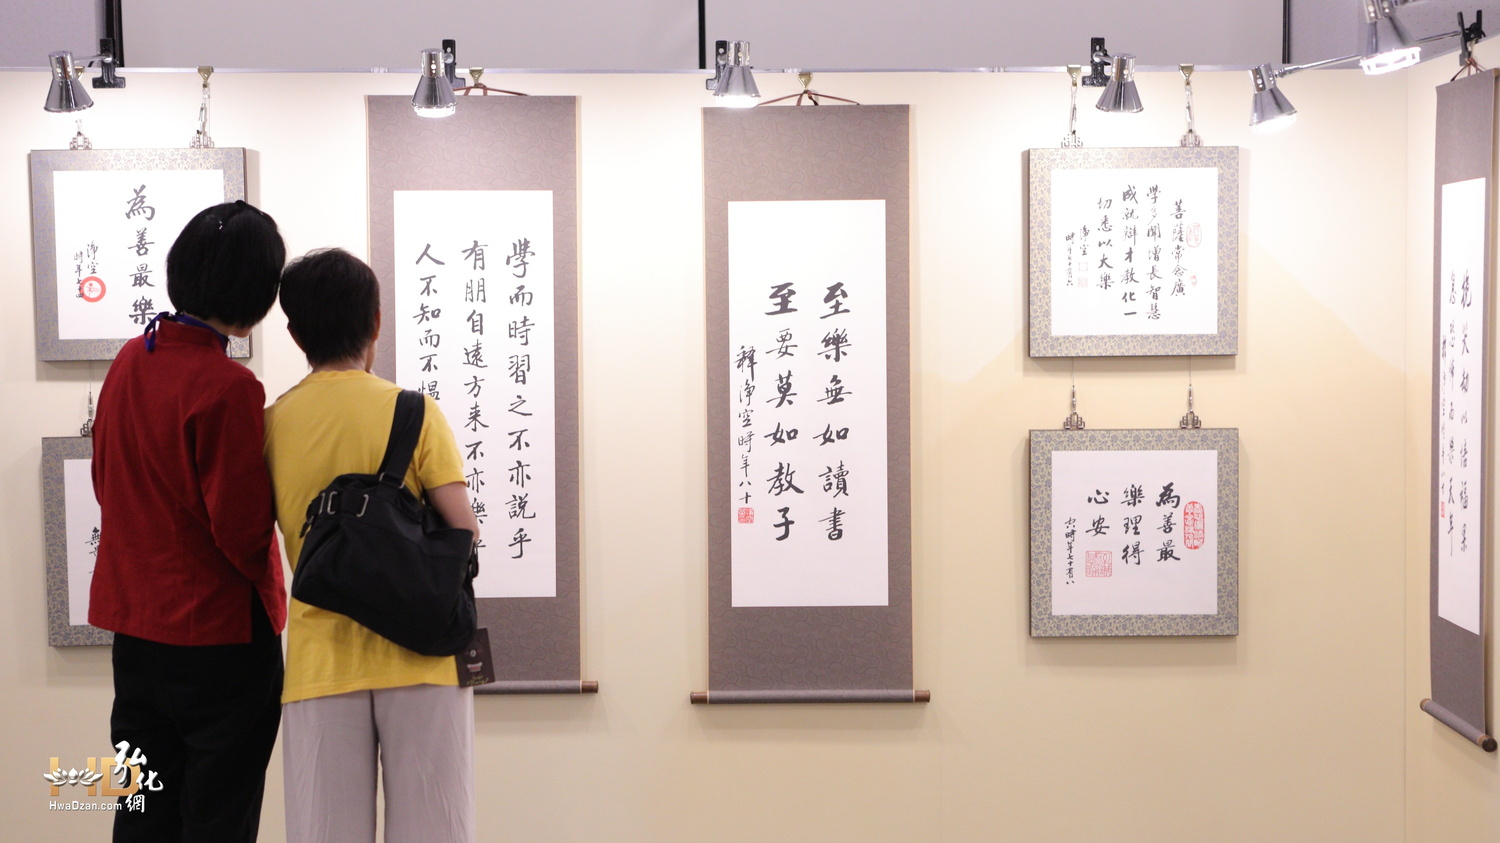 為善最樂
淨空
時年七十四
學而時習之不亦說乎
有朋自遠方来不亦樂乎
人不知而不慍
至樂無如讀書
至要莫如教子
釋淨空時年八十
菩薩常念廣
學多聞增長智慧
成就辯才教化一
切悉以大樂
淨空
為善最
樂理得
心安
時年七十有八
HD
弘化網
HwaDzan.com